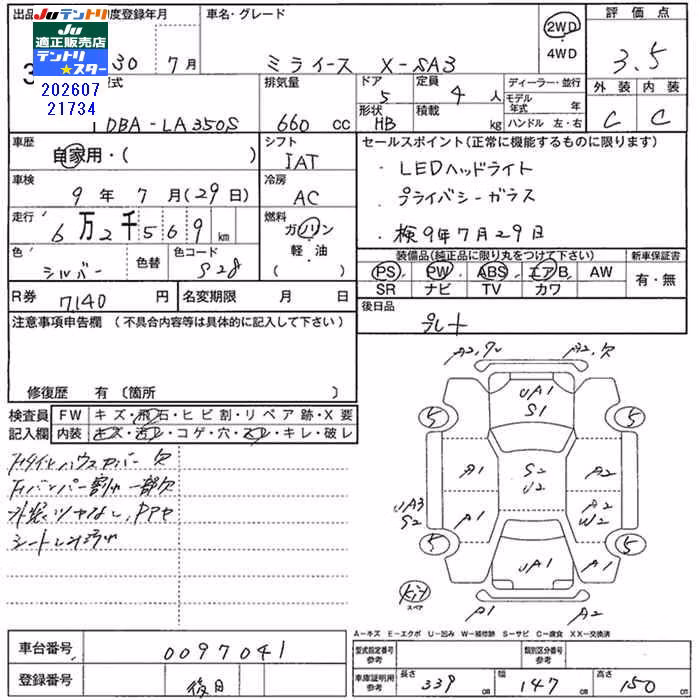 出品
度登録年月
車名・グレード
Juテントリ
Ju
適正販売店
テントリ
スター
202607
21734
30 7月
ミライース X-SA3
2WD
4WD
評価点
3.5
外装 内装
C C
型式
DBA-LA350S
排気量
660 cc
ドア
5
定員
4 人
形状
HB
積載
kg
ディーラー・並行
モデル年式 年
ハンドル 左・右
車歴
自家用・( )
シフト
IAT
車検
9年 7月(29日)
冷房
AC
走行
6万2千569 km
燃料
ガソリン
軽・油
( )
色
シルバー
色替
色コード
S28
R券
7140 円
名変期限 月 日
セールスポイント(正常に機能するものに限ります)
・LEDヘッドライト
・プライバシーガラス
・検9年7月29日
装備品(純正品に限り丸をつけて下さい)
PS PW ABS エアB AW
SR ナビ TV カワ
新車保証書
有・無
後日品
プレート
注意事項申告欄(不具合内容等は具体的に記入して下さい)
修復歴 有〔箇所 〕
検査員
記入欄
FW キズ・飛石・ヒビ割・リペア跡・X要
内装 キズ・汚レ・コゲ・穴・スレ・キレ・破レ
欠
バンパー割れ一部欠
シート
A2,
A2,欠
UA1
S1
5 5
A1
S2
U2
A2
UA3
S2
A1
A2
W2
5 5
UA1
A1
キット
スペア
A1 A2
A-キズ E-エクボ U-凹み W-補修跡 S-サビ C-腐食 XX-交換済
車台番号
0097041
登録番号
後日
型式指定番号
参考
類別区分番号
参考
車庫証明用
参考
長さ
339 cm
幅
147 cm
高さ
150 cm